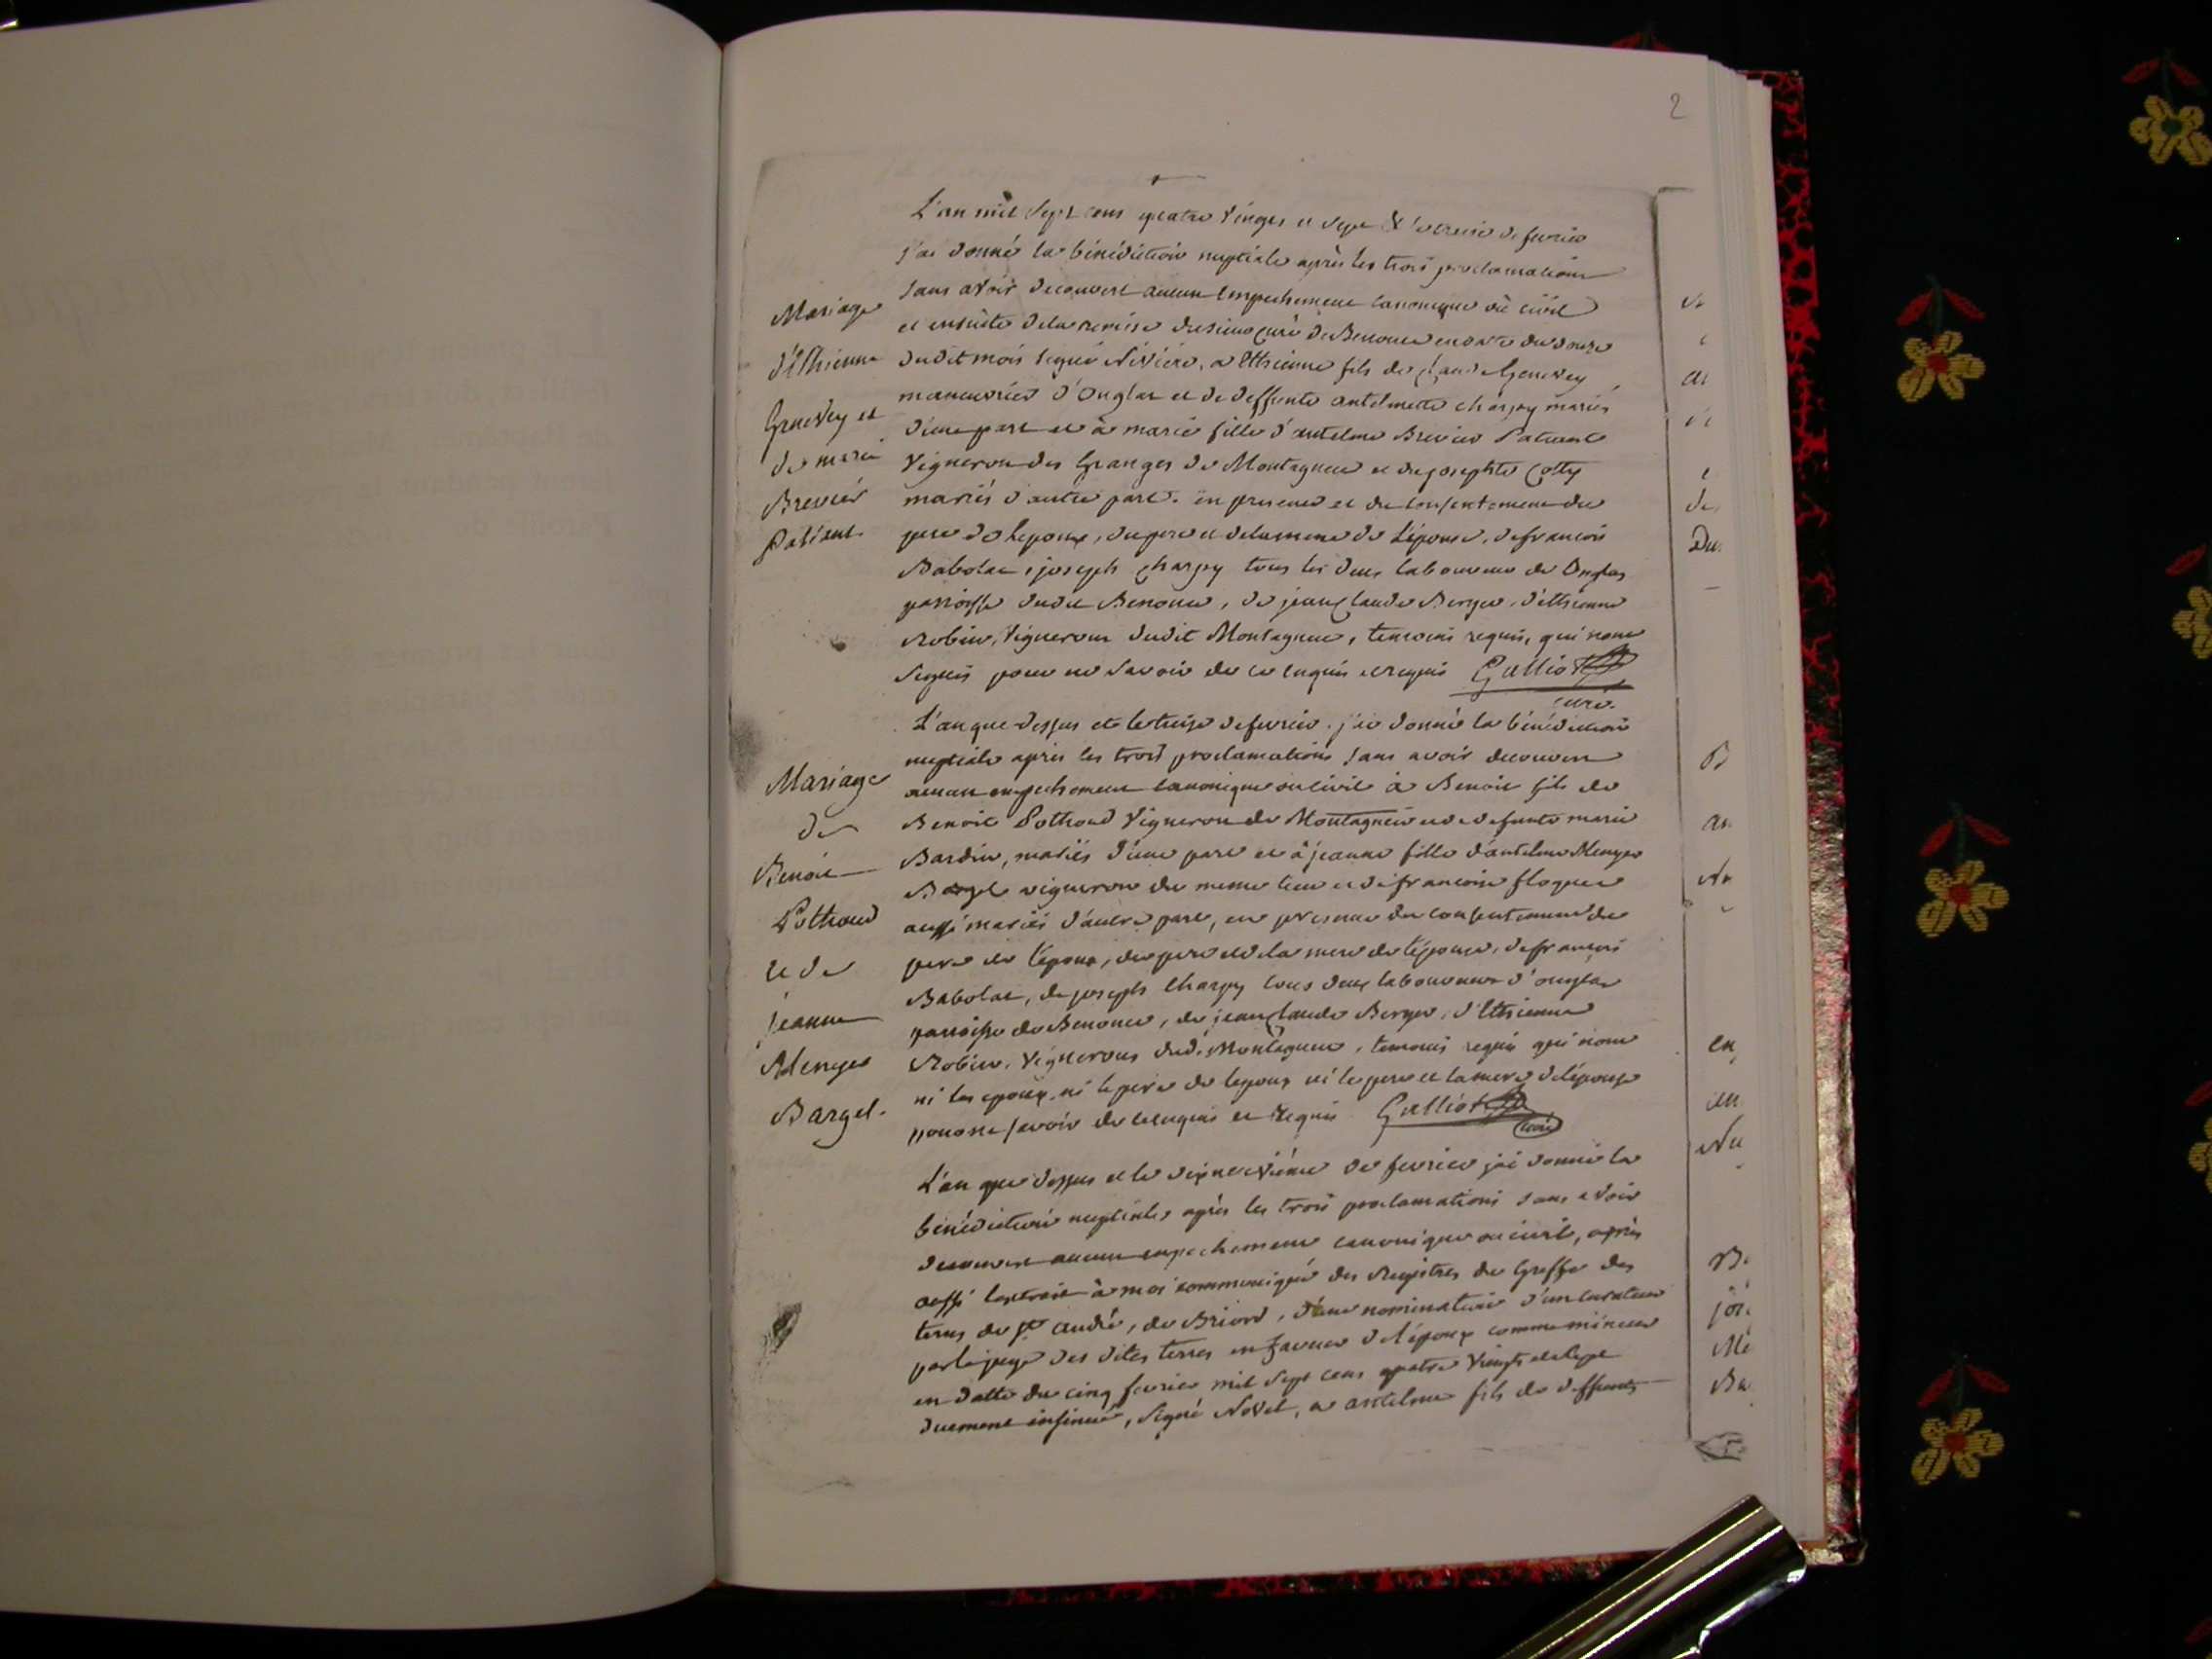 2
L'an mil sept cens quatre vingts et sept & le treize de fevrier
j'ai donné la bénédiction nuptiale après les trois proclamations
sans avoir decouvert aucun empechement canonique ou civil
et ensuite de la remise du sieur curé de Benonce en date du douze
dudit mois signé Niviere, a Etthienne fils de Claude Genevey
manouvrier d'Onglas et de deffunte antelmette charpy mariés
d'une part et à marie fille d'antelme Brevier Patient
Vigneron des Granges de Montagneu et de josephte Cotty
mariés d'autre part. en presence et du consentement du
pere de l'epoux, du pere et de la mere de l'épouse, de françois
Babolat, joseph charpy tous les deux laboureurs de Onglas
paroisse dudit Benonce, de jean Claude Berger, d'etthienne
Robin, Vignerons dudit Montagneu, temoins requis, qui n'ont
signés pour ne savoir de ce enquis et requis Galliot
curé.
Mariage
d'Etthienne
Genevey et
de marie
Brevier
Patient
L'an que dessus et le treize de fevrier. j'ai donné la bénédiction
nuptiale après les trois proclamations sans avoir decouvert
aucun empechement canonique ou civil à Benoit fils de
Benoit Pothoud Vigneron de Montagneu et de defunte marie
Bardin, mariés d'une part et à jeanne fille d'antelme Menger
Bargel vigneron du meme lieu et de françoise
aussi mariés d'autre part, en presence du consentement du
pere de l'epoux, du pere et de la mere de l'épouse, de françois
Babolat, de joseph Charpy tous deux laboureurs d'onglas
paroisse de Benonce, de jean Claude Berger, d'Etthienne
Robin, Vignerons dudit Montagneu, temoins requis qui n'ont
ni les epoux, ni le pere de lepoux ni le pere et la mere de l'épouse
pour ne savoir de ce enquis et requis Galliot
curé
Mariage
de
Benoit
Pothoud
et de
jeanne
Menger
Bargel.
L'an que dessus et le de fevrier jai donné la
bénédiction nuptiale, après les trois proclamations sans avoir
decouvert aucun empechement canonique ou civil, après
aussi l'extrait à moi communiqué des Registres du Greffe des
terres de St andré, de Briord, d'une nomination d'un curateur
par le juge des dites terres en faveur de l'époux comme mineur
en datte du cinq fevrier mil sept cens quatre vingts et sept
duement insinué, signé Novel, a antelme fils de deffunts